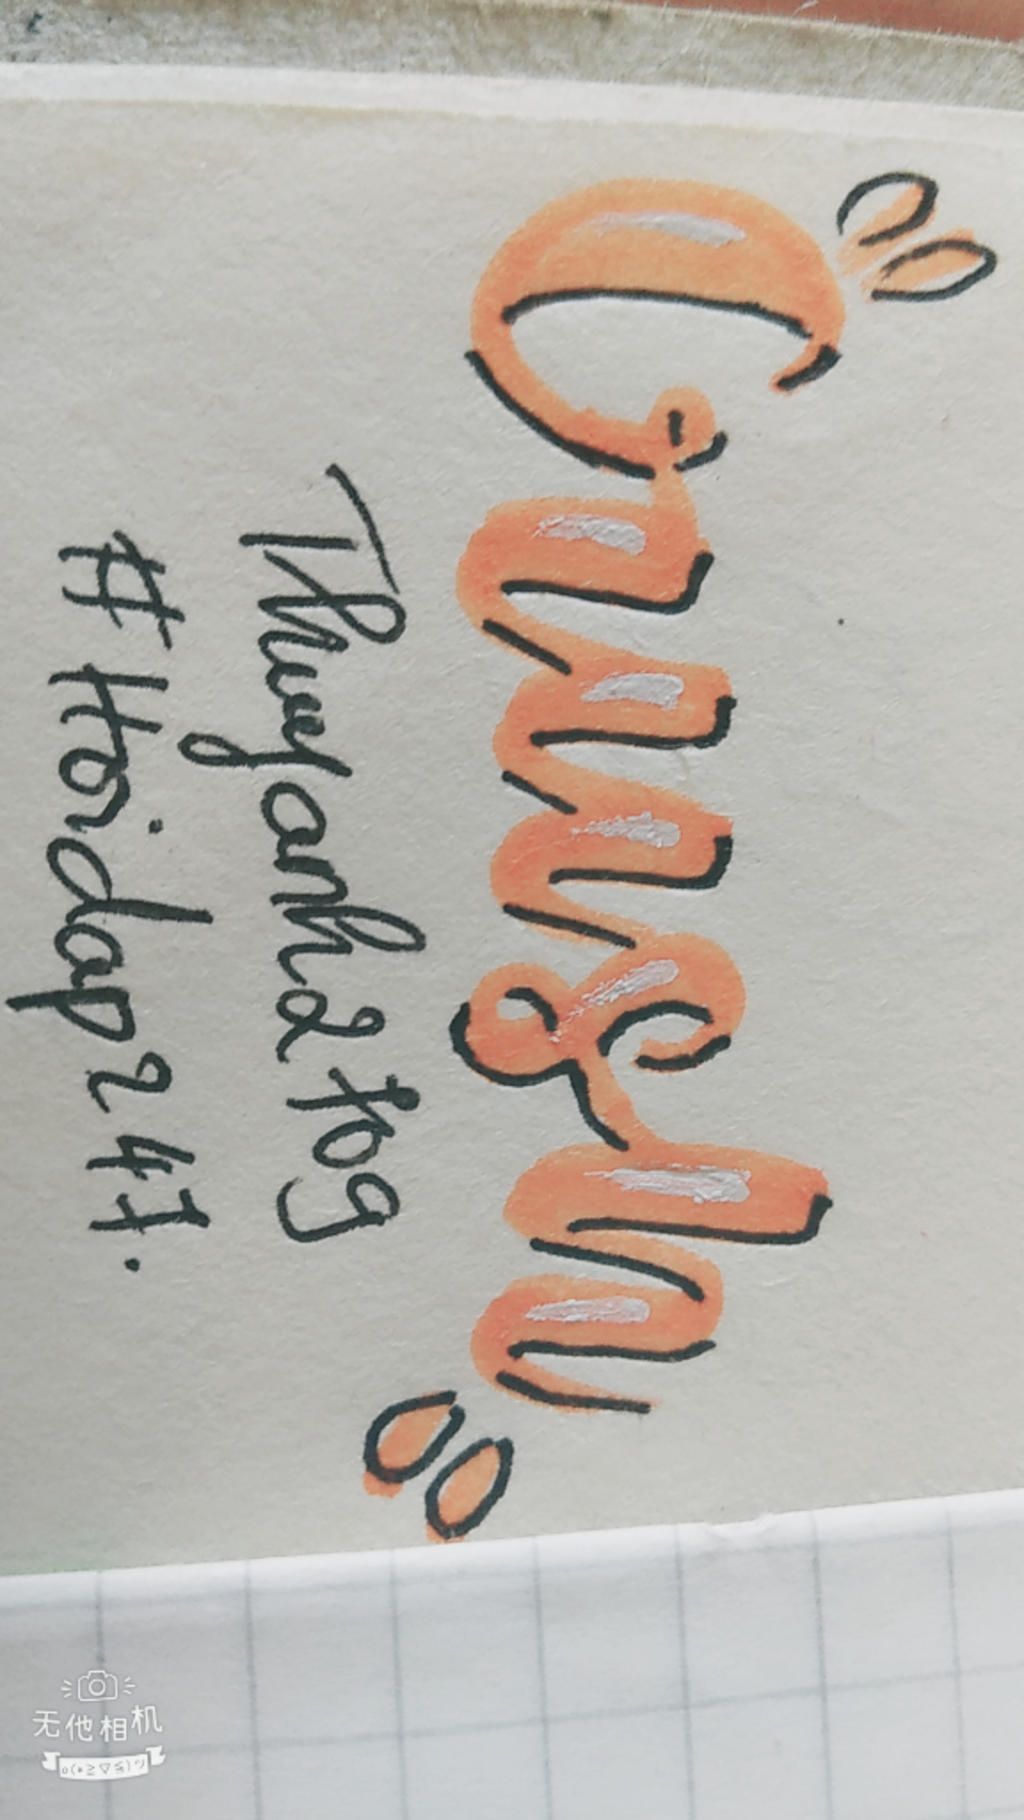 Crush
Thuyanh2709
#Hoidap247.
无他相机